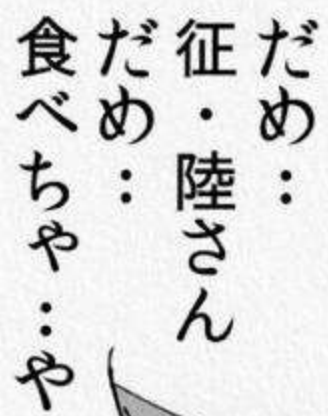 だめ：
征・陸さん
だめ：
食べちゃ：や